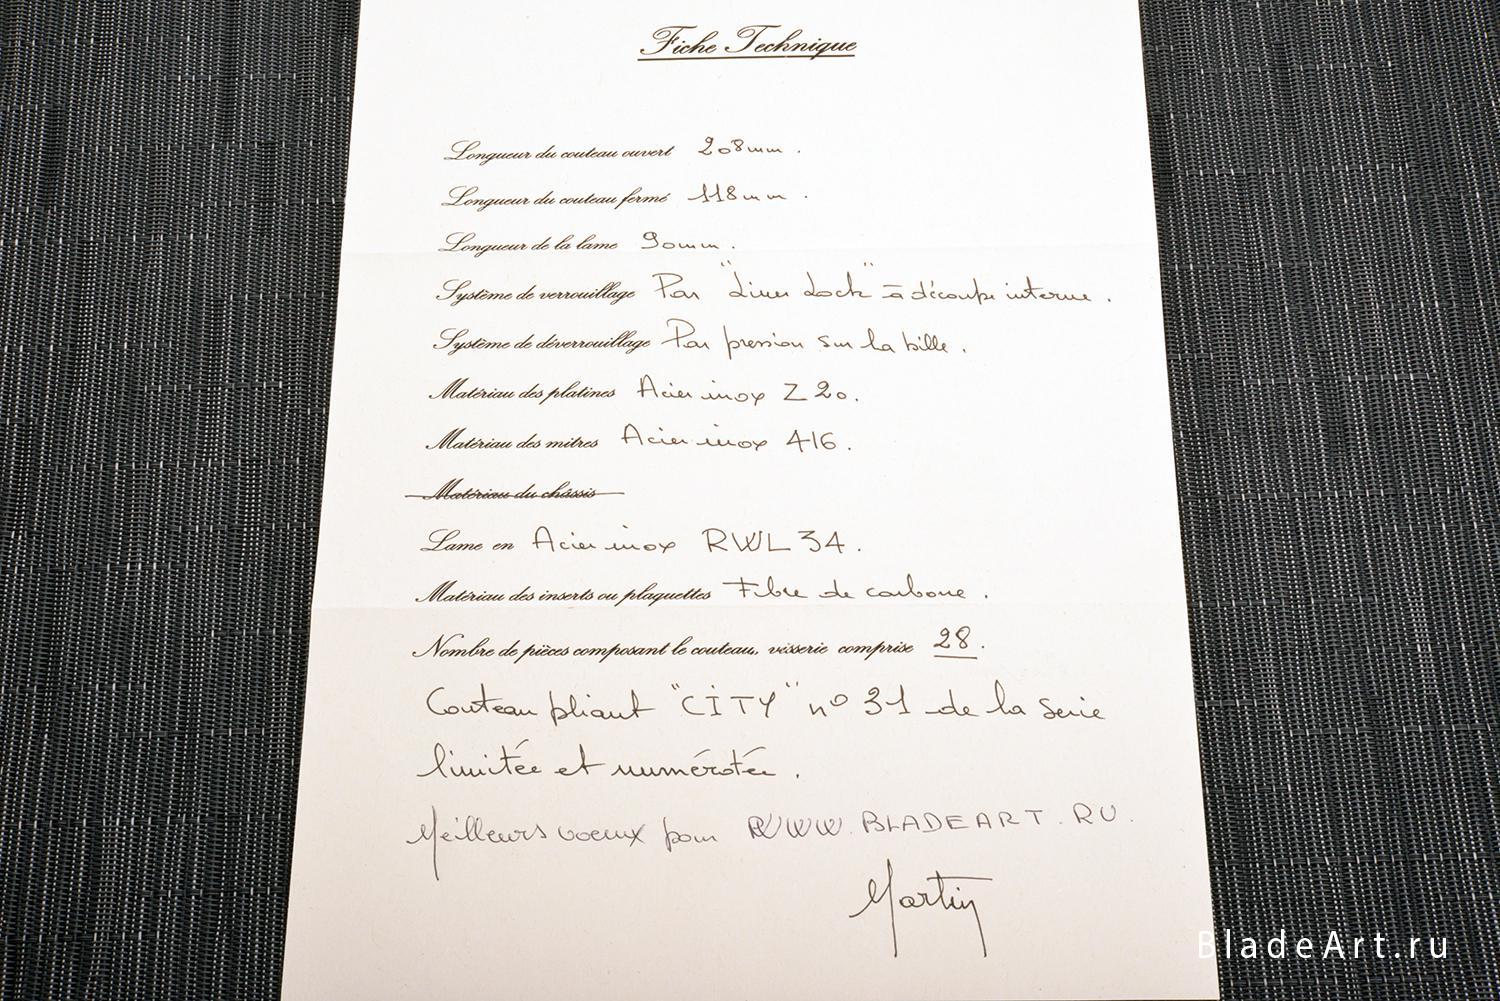 Fiche Technique
Longueur du couteau ouvert 208mm.
Longueur du couteau fermé 118mm.
Longueur de la lame 90mm.
Système de verrouillage Par "Liner Lock" à découpe interne.
Système de déverrouillage Par pression sur la bille.
Matériau des platines Acier inox Z20.
Matériau des mitres Acier inox 416.
Matériau du châssis
Lame en Acier inox RWL34.
Matériau des inserts ou plaquettes Fibre de carbone.
Nombre de pièces composant le couteau, visserie comprise 28.
Couteau pliant "CITY" n° 31 de la serie
limitée et numérotée.
Meilleurs voeux pour WWW.BLADEART.RU.
Martin
BladeArt.ru